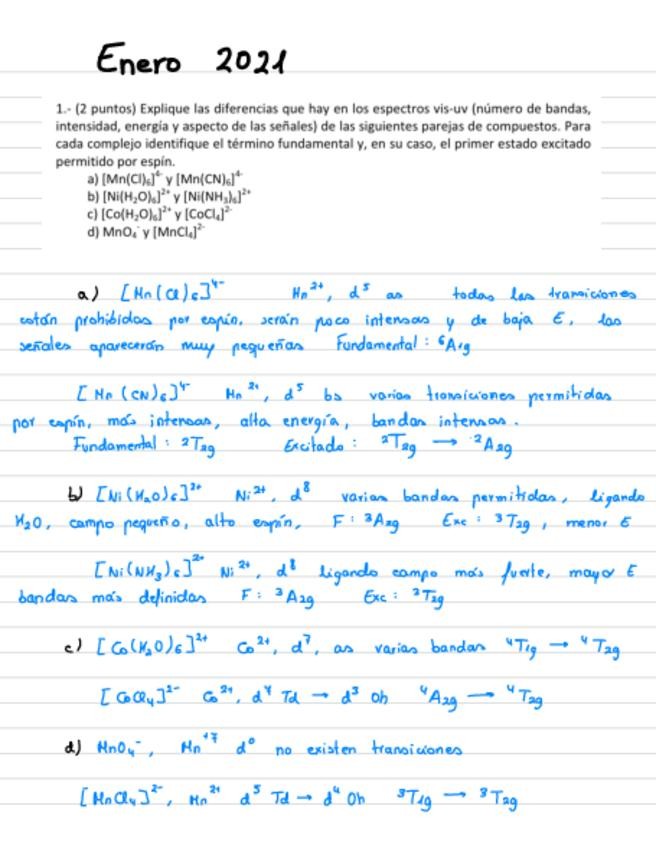 Enero 2021
1.- (2 puntos) Explique las diferencias que hay en los espectros vis-uv (número de bandas,
intensidad, energía y aspecto de las señales) de las siguientes parejas de compuestos. Para
cada complejo identifique el término fundamental y, en su caso, el primer estado excitado
permitido por espín.
a) [Mn(Cl)₆]⁴⁻ y [Mn(CN)₆]⁴⁻
b) [Ni(H₂O)₆]²⁺ y [Ni(NH₃)₆]²⁺
c) [Co(H₂O)₆]²⁺ y [CoCl₄]²⁻
d) MnO₄⁻ y [MnCl₄]²⁻
a) [Mn(Cl)₆]⁴⁻ Mn²⁺, d⁵ as todas las transiciones
están prohibidas por espín, serán poco intensas y de baja E, las
señales aparecerán muy pequeñas Fundamental : ⁶A₁g
[Mn (CN)₆]⁴⁻ Mn²⁺, d⁵ bs varias transiciones permitidas
por espín, más intensas, alta energía, bandas intensas.
Fundamental : ²T₂g Excitado : ²T₂g → ²A₂g
b) [Ni(H₂O)₆]²⁺ Ni²⁺, d⁸ varias bandas permitidas, ligando
H₂O, campo pequeño, alto espín, F : ³A₂g Exc : ³T₂g , menor E
[Ni(NH₃)₆]²⁺ Ni²⁺, d⁸ ligando campo más fuerte, mayor E
bandas más definidas F : ³A₂g Exc : ³T₂g
c) [Co(H₂O)₆]²⁺ Co²⁺, d⁷, as varias bandas ⁴T₁g → ⁴T₂g
[CoCl₄]²⁻ Co²⁺, d⁷ Td → d³ Oh ⁴A₂g → ⁴T₂g
d) MnO₄⁻, Mn⁺⁷ d⁰ no existen transiciones
[MnCl₄]²⁻, Mn²⁺ d⁵ Td → d⁴ Oh ³T₁g → ³T₂g